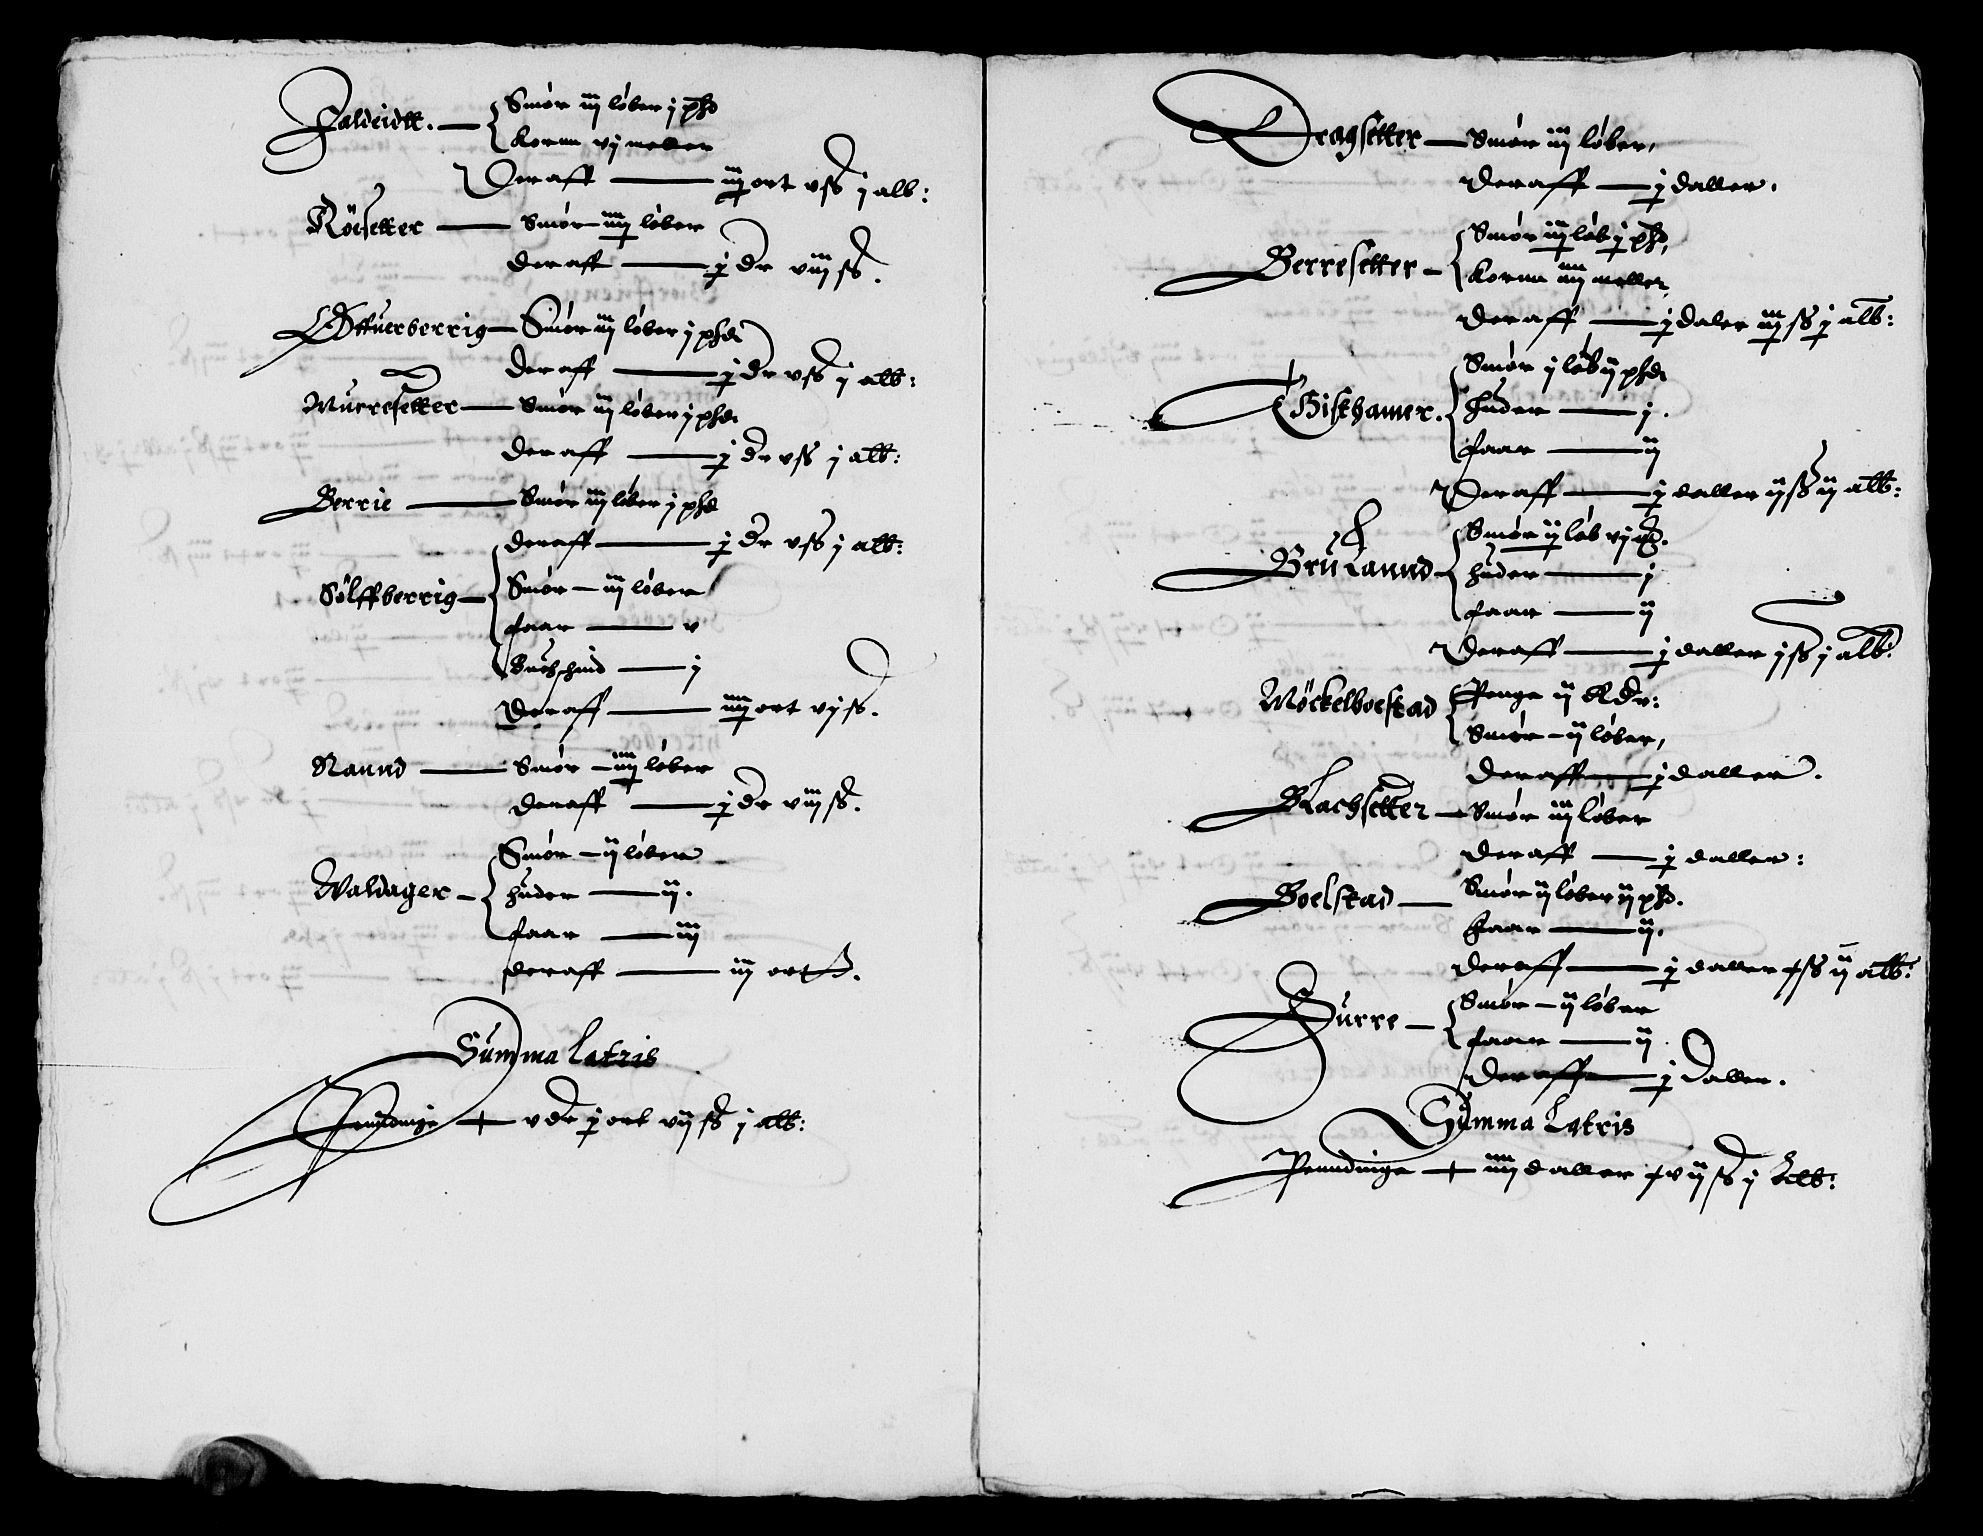 Faldeidtt. — Smør iij løber j phd
Kornn vj meller
Deraff — iiij ort v ſs j alb:
Röesetter — Smør iiij løber
deraff — j dr viij ſs.
Offuerberrig — Smør iij løber j phd
deraff — j dr v ſs j alb:
Murresetter — Smør iij løber j phd
deraff — j dr v ſs j alb:
Berrie — Smør iij løber j phd
deraff — j dr v ſs j alb:
Sølffberrig — Smør — iij løber
faar — v
Buchschind — j
Deraff — iiij ort vj ſs.
Naund — Smør — iiij løber
deraff — j dr viij ſs.
Waldager — Smør — ij løber
huder — ij.
faar — iiij
deraff — iij ort
Summa Latris
Penndinge + v dr j ort vij ſs j alb:
Dragsetter — Smør iij løber,
deraff — j daller.
Berresetter — Smør iij løb j phd,
Kornn iiij meller
deraff — j daler iij ſs j alb:
Gisthamer. Smør ij løb ij phd
huder — j.
faar — ij
Deraff — j daller ij ſs ij alb:
Brulannd — Smør ij løb vj
huder — j
faar — ij
Deraff — j daller j ſs j alb:
Möckelboestad Penge ij Rdr:
Smør — ij løber,
deraff — j daller.
Blachsetter — Smør iij løber
deraff — j daller:
Boelstad — Smør ij løber ij phd.
Faar — ij.
deraff — j daller + ſs ij alb:
Furre — Smør — ij løber
faar — ij
deraff — j daller.
Summa Latris
Penndinge + iiij daller + v ij ſs j alb: